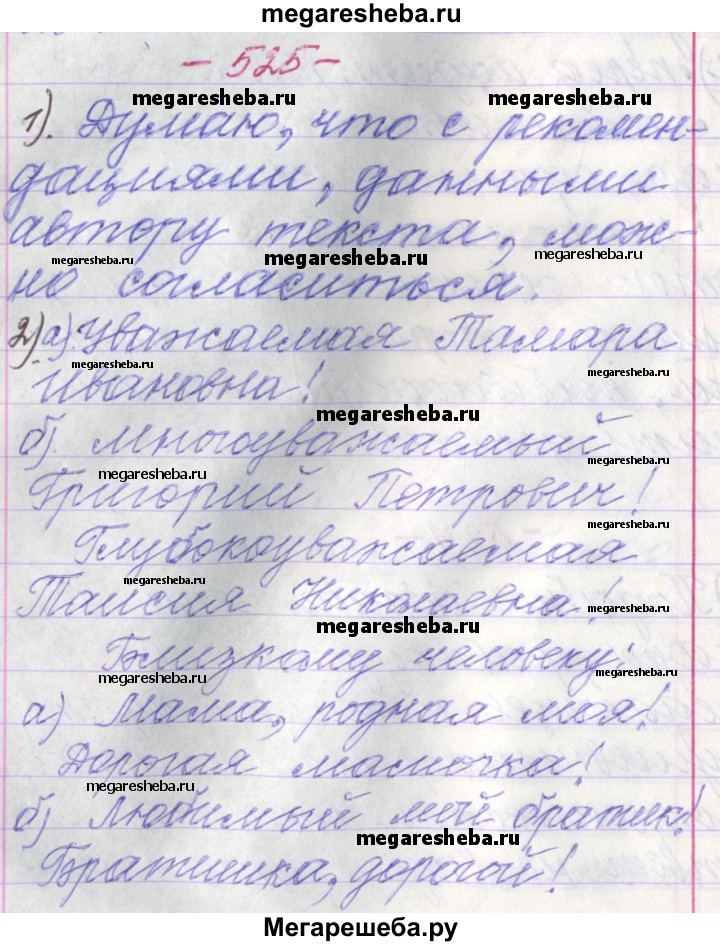 megaresheba.ru
- 525 -
megaresheba.ru megaresheba.ru
1). Думаю, что с рекомен-
дациями, данными
автору текста, мож-
megaresheba.ru megaresheba.ru megaresheba.ru
но согласиться.
2) а) Уважаемая Тамара
megaresheba.ru megaresheba.ru
Ивановна!
megaresheba.ru
б). Многоуважаемый
megaresheba.ru megaresheba.ru
Григорий Петрович!
megaresheba.ru
Глубокоуважаемая
megaresheba.ru
Таисия Николаевна!
megaresheba.ru
megaresheba.ru
Близкому человеку:
megaresheba.ru megaresheba.ru
а) Мама, родная моя!
Дорогая мамочка!
megaresheba.ru
б) Любимый мой братик!
megaresheba.ru
Братишка, дорогой!
Мегарешеба.ру